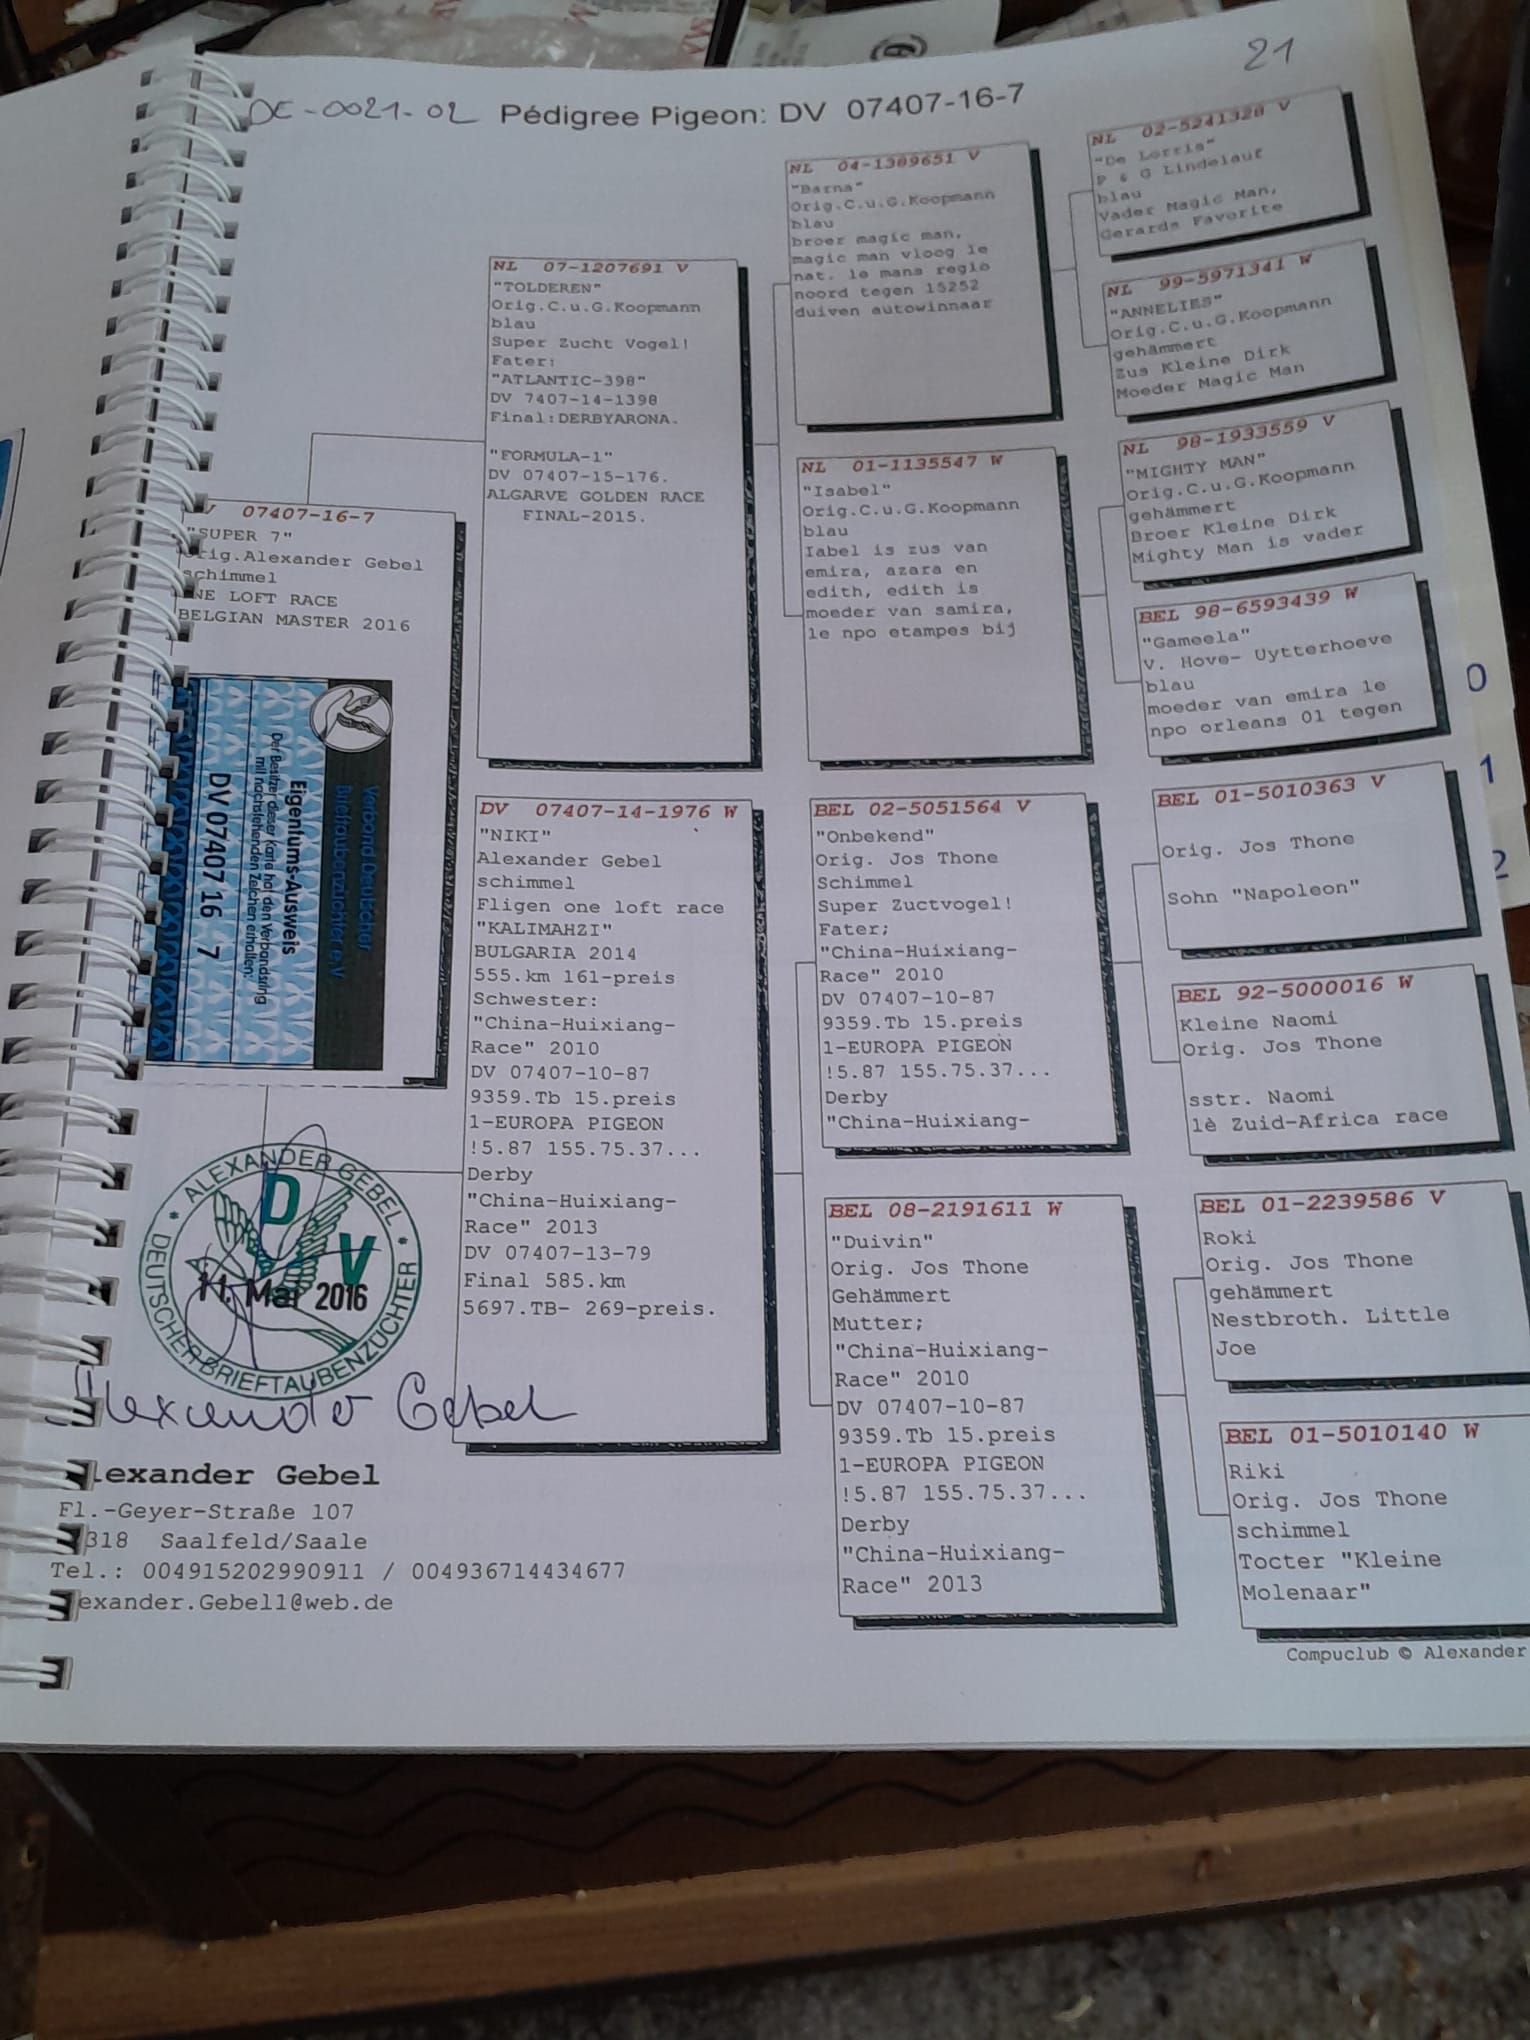 21
DE-0021-02 Pédigree Pigeon: DV 07407-16-7
07407-16-7
"SUPER 7"
rig.Alexander Gebel
schimmel
NE LOFT RACE
BELGIAN MASTER 2016
Verband Deutscher
Brieftaubenzüchter e.V
Eigentums-Ausweis
Der Besitzer dieser Karte hat den Verbandsring
mit nachstehenden Zeichen erhalten:
DV 07407 16 7
NL 07-1207691 V
"TOLDEREN"
Orig.C.u.G.Koopmann
blau
Super Zucht Vogel!
Fater:
"ATLANTIC-398"
DV 7407-14-1398
Final:DERBYARONA.
"FORMULA-1"
DV 07407-15-176.
ALGARVE GOLDEN RACE
FINAL-2015.
DV 07407-14-1976 W
"NIKI"
Alexander Gebel
schimmel
Fligen one loft race
"KALIMAHZI"
BULGARIA 2014
555.km 161-preis
Schwester:
"China-Huixiang-
Race" 2010
DV 07407-10-87
9359.Tb 15.preis
1-EUROPA PIGEON
!5.87 155.75.37...
Derby
"China-Huixiang-
Race" 2013
DV 07407-13-79
Final 585.km
5697.TB- 269-preis.
NL 04-1389651 V
"Barna"
Orig.C.u.G.Koopmann
blau
broer magic man,
magic man vloog 1e
nat. le mans regio
noord tegen 15252
duiven autowinnaar
NL 01-1135547 W
"Isabel"
Orig.C.u.G.Koopmann
blau
Iabel is zus van
emira, azara en
edith, edith is
moeder van samira,
1e npo etampes bij
BEL 02-5051564 V
"Onbekend"
Orig. Jos Thone
Schimmel
Super Zuctvogel!
Fater;
"China-Huixiang-
Race" 2010
DV 07407-10-87
9359.Tb 15.preis
1-EUROPA PIGEON
!5.87 155.75.37...
Derby
"China-Huixiang-
BEL 08-2191611 W
"Duivin"
Orig. Jos Thone
Gehämmert
Mutter;
"China-Huixiang-
Race" 2010
DV 07407-10-87
9359.Tb 15.preis
1-EUROPA PIGEON
!5.87 155.75.37...
Derby
"China-Huixiang-
Race" 2013
NL 02-5241328 V
"De Lorris"
P & G Lindelauf
blau
Vader Magic Man,
Gerards Favorite
NL 99-5971341 W
"ANNELIES"
Orig.C.u.G.Koopmann
gehämmert
Zus Kleine Dirk
Moeder Magic Man
NL 98-1933559 V
"MIGHTY MAN"
Orig.C.u.G.Koopmann
gehämmert
Broer Kleine Dirk
Mighty Man is vader
BEL 98-6593439 W
"Gameela"
V. Hove- Uytterhoeve
blau
moeder van emira 1e
npo orleans 01 tegen
BEL 01-5010363 V
Orig. Jos Thone
Sohn "Napoleon"
BEL 92-5000016 W
Kleine Naomi
Orig. Jos Thone
sstr. Naomi
1è Zuid-Africa race
BEL 01-2239586 V
Roki
Orig. Jos Thone
gehämmert
Nestbroth. Little
Joe
BEL 01-5010140 W
Riki
Orig. Jos Thone
schimmel
Tocter "Kleine
Molenaar"
0
1
2
* ALEXANDER GEBEL *
DEUTSCHER BRIEFTAUBENZÜCHTER
D
V
11. Mai 2016
Alexander Gebel
lexander Gebel
Fl.-Geyer-Straße 107
318 Saalfeld/Saale
Tel.: 004915202990911 / 004936714434677
exander.Gebel1@web.de
Compuclub © Alexander